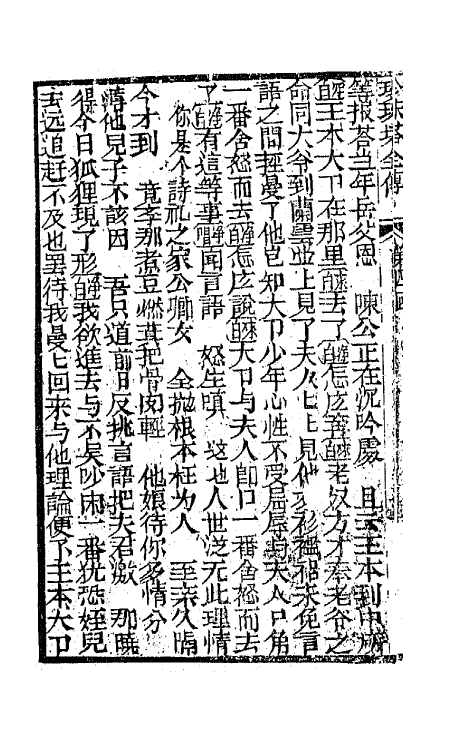 珍珠塔全傳
等报荅当年岳父恩　陳公正在沉吟處　且云王本到中所
王本大卩在那里去了怎広老奴方才奉老爷之
命同大爷到蘭雲並上見了夫人上見他衣衫襤褸未免言
語之間輕慢了他豈知大卩少年心性不受屈辱与夫人口角
一番舍怒而去怎広說大卩与夫人即口一番舍怒而去
了有這等事聞言語　怒生嗔　這也人世泛无此理情
你是个詩礼之家公卿女　全抛根本枉为人　至亲久隔
今才到　竟李那煮豆燃萁把骨肉輕　他娘待你多情分
他兒子不該因　吾只道前日反挑言語把夫君激　那曉
得今日狐狸現了形我欲進去与不炒闹一番犹恐姪兒
去远追赶不及也罢待我慢上回来与他理論便了王本大卩